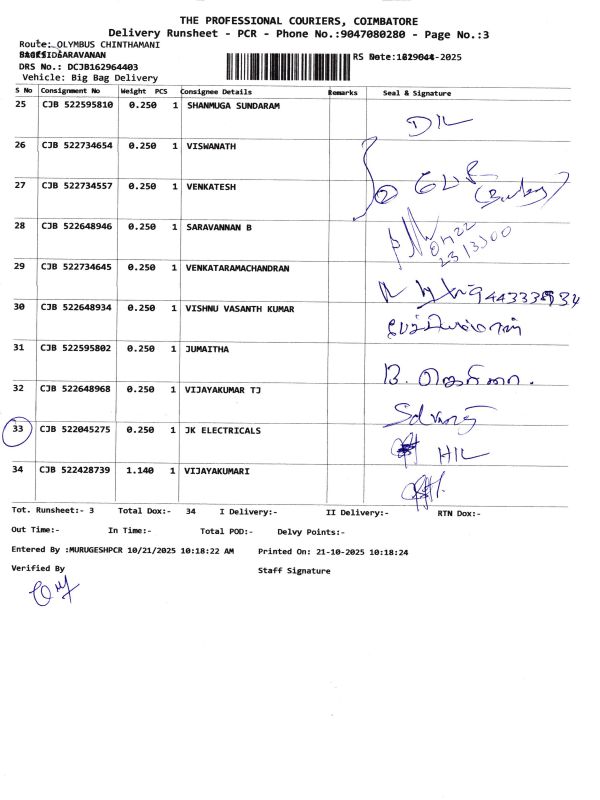 THE PROFESSIONAL COURIERS, COIMBATORE
Delivery Runsheet - PCR - Phone No.:9047080280 - Page No.:3
Route: OLYMBUS CHINTHAMANI
SARAVANAN
RS -2025
DRS No.: DCJB162964403
Vehicle: Big Bag Delivery
S No Consignment No Weight PCS Consignee Details Remarks Seal & Signature
25 CJB 522595810 0.250 1 SHANMUGA SUNDARAM
26 CJB 522734654 0.250 1 VISWANATH
27 CJB 522734557 0.250 1 VENKATESH
2
28 CJB 522648946 0.250 1 SARAVANNAN B
29 CJB 522734645 0.250 1 VENKATARAMACHANDRAN
30 CJB 522648934 0.250 1 VISHNU VASANTH KUMAR
31 CJB 522595802 0.250 1 JUMAITHA
32 CJB 522648968 0.250 1 VIJAYAKUMAR TJ
33 CJB 522045275 0.250 1 JK ELECTRICALS
34 CJB 522428739 1.140 1 VIJAYAKUMARI
Tot. Runsheet:- 3 Total Dox:- 34 I Delivery:- II Delivery:- RTN Dox:-
Out Time:- In Time:- Total POD:- Delvy Points:-
Entered By :MURUGESHPCR 10/21/2025 10:18:22 AM Printed On: 21-10-2025 10:18:24
Verified By
Staff Signature